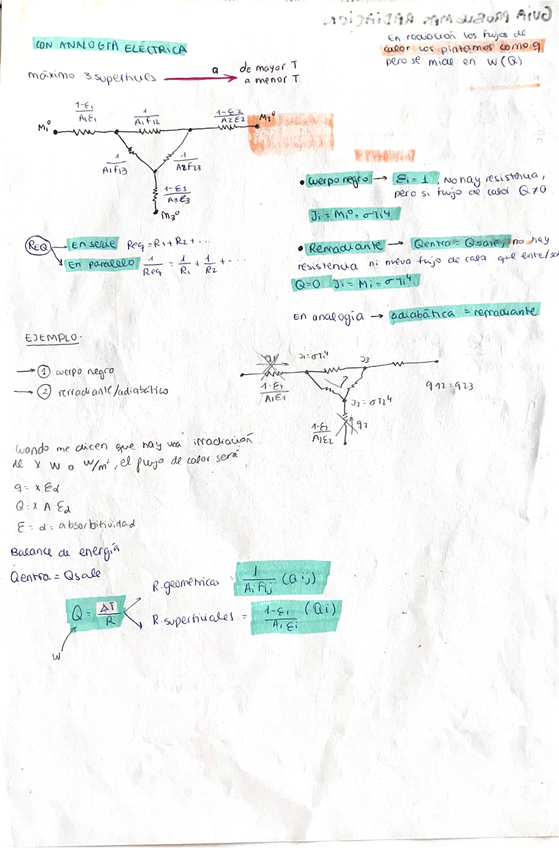 CON ANALOGÍA ELÉCTRICA
En radiación los flujos de
calor los pintamos como q
pero se mide en W (Q)
máximo 3 superficies
Q
de mayor T
a menor T
M₁°
1-ε₁ / A₁ε₁
1 / A₁F₁₂
1-ε₂ / A₂ε₂
M₂°
1 / A₁F₁₃
1 / A₂F₂₃
1-ε₃ / A₃ε₃
M₃°
• Cuerpo negro → εi = 1, No hay resistencia,
pero si flujo de calor Q≠0
Ji = Mi° = σTi⁴
REQ
En serie Req = R₁ + R₂ + ...
En paralelo 1/Req = 1/R₁ + 1/R₂ + ...
• Rerradiante → Qentra = Qsale, no hay
resistencia ni nueva flujo de calor que entre/sa
Q=0 Ji = Mi = σTi⁴
En analogía → adiabática = rerradiante
EJEMPLO.
→ ① cuerpo negro
→ ② rerradiante/adiabático
1-ε₁ / A₁ε₁
J₁=σT₁⁴
J₃
J₂=σT₂⁴
q₂
q12 = q23
Cuando me dicen que hay una irradiación
de x W o W/m², el flujo de calor será
q = x εα
Q = x A εα
ε = α = absorbitividad
Balance de energía
Qentra = Qsale
Q = ΔT / R
W
R. geométricas = 1 / AiFij (Qij)
R. superficiales = 1-εi / Aiεi (Qi)